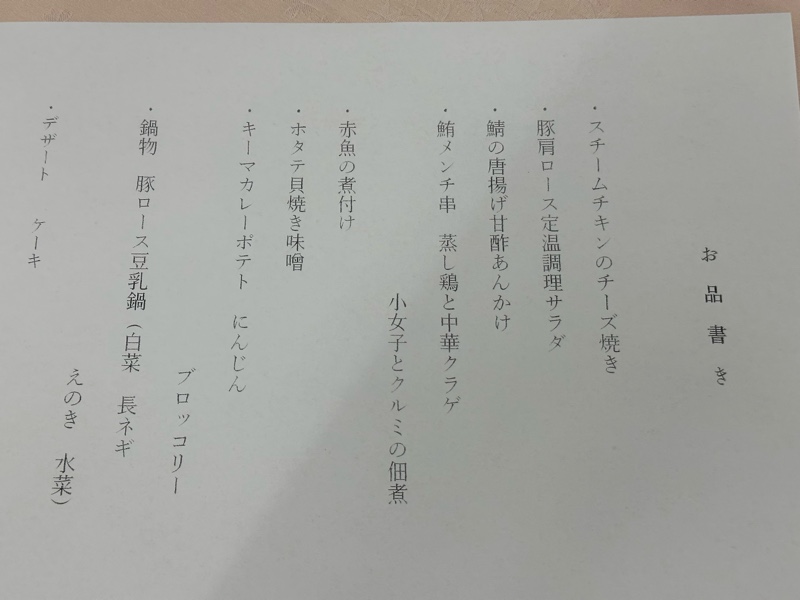 お品書き
・スチームチキンのチーズ焼き
・豚肩ロース定温調理サラダ
・鯖の唐揚げ甘酢あんかけ
・鮪メンチ串　蒸し鶏と中華クラゲ
小女子とクルミの佃煮
・赤魚の煮付け
・ホタテ貝焼き味噌
・キーマカレーポテト　にんじん
ブロッコリー
・鍋物　豚ロース豆乳鍋（白菜　長ネギ
えのき　水菜）
・デザート　ケーキ